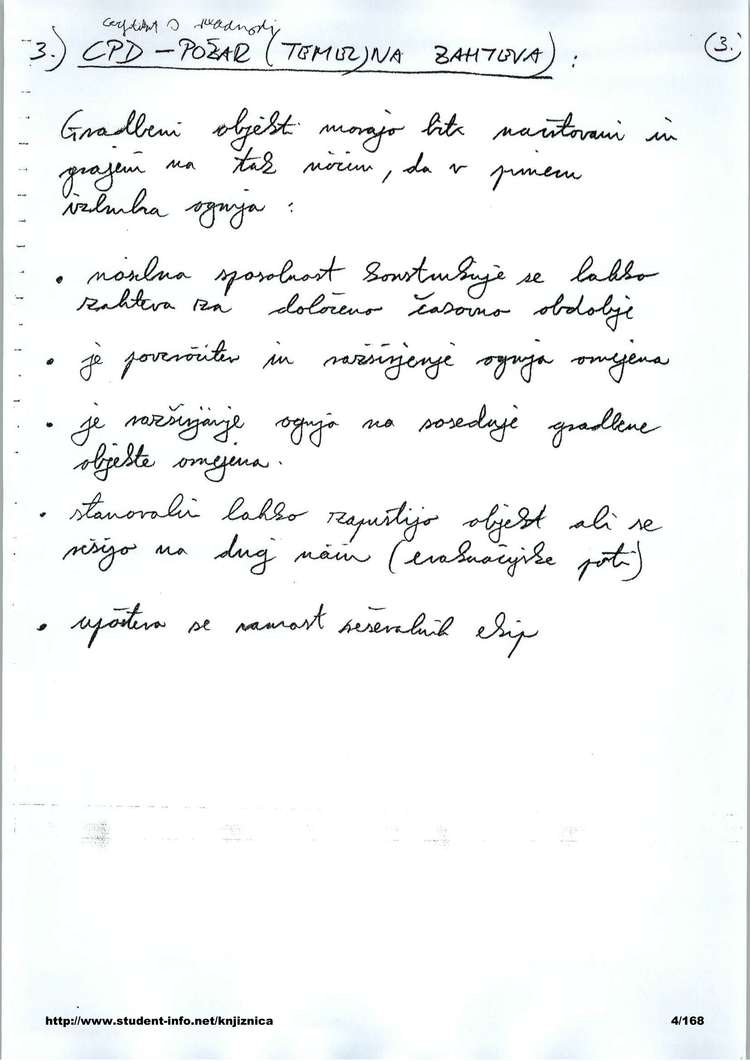 3.) CPD – POŽAR (TEMELJNA ZAHTEVA) :
3.
Gradbeni objekti morajo biti načrtovani in
grajeni na tak način, da v primeru
izbruha ognja :
• nosilna sposobnost konstrukcije se lahko
zahteva za določeno časovno obdobje
• je povzročitev in razširjenje ognja omejena
• je razširjanje ognja na sosednje gradbene
objekte omejena.
• stanovalci lahko zapustijo objekt ali se
rešijo na drug način (evakuacijske poti)
• upošteva se varnost reševalnih ekip
http://www.student-info.net/knjiznica
4/168